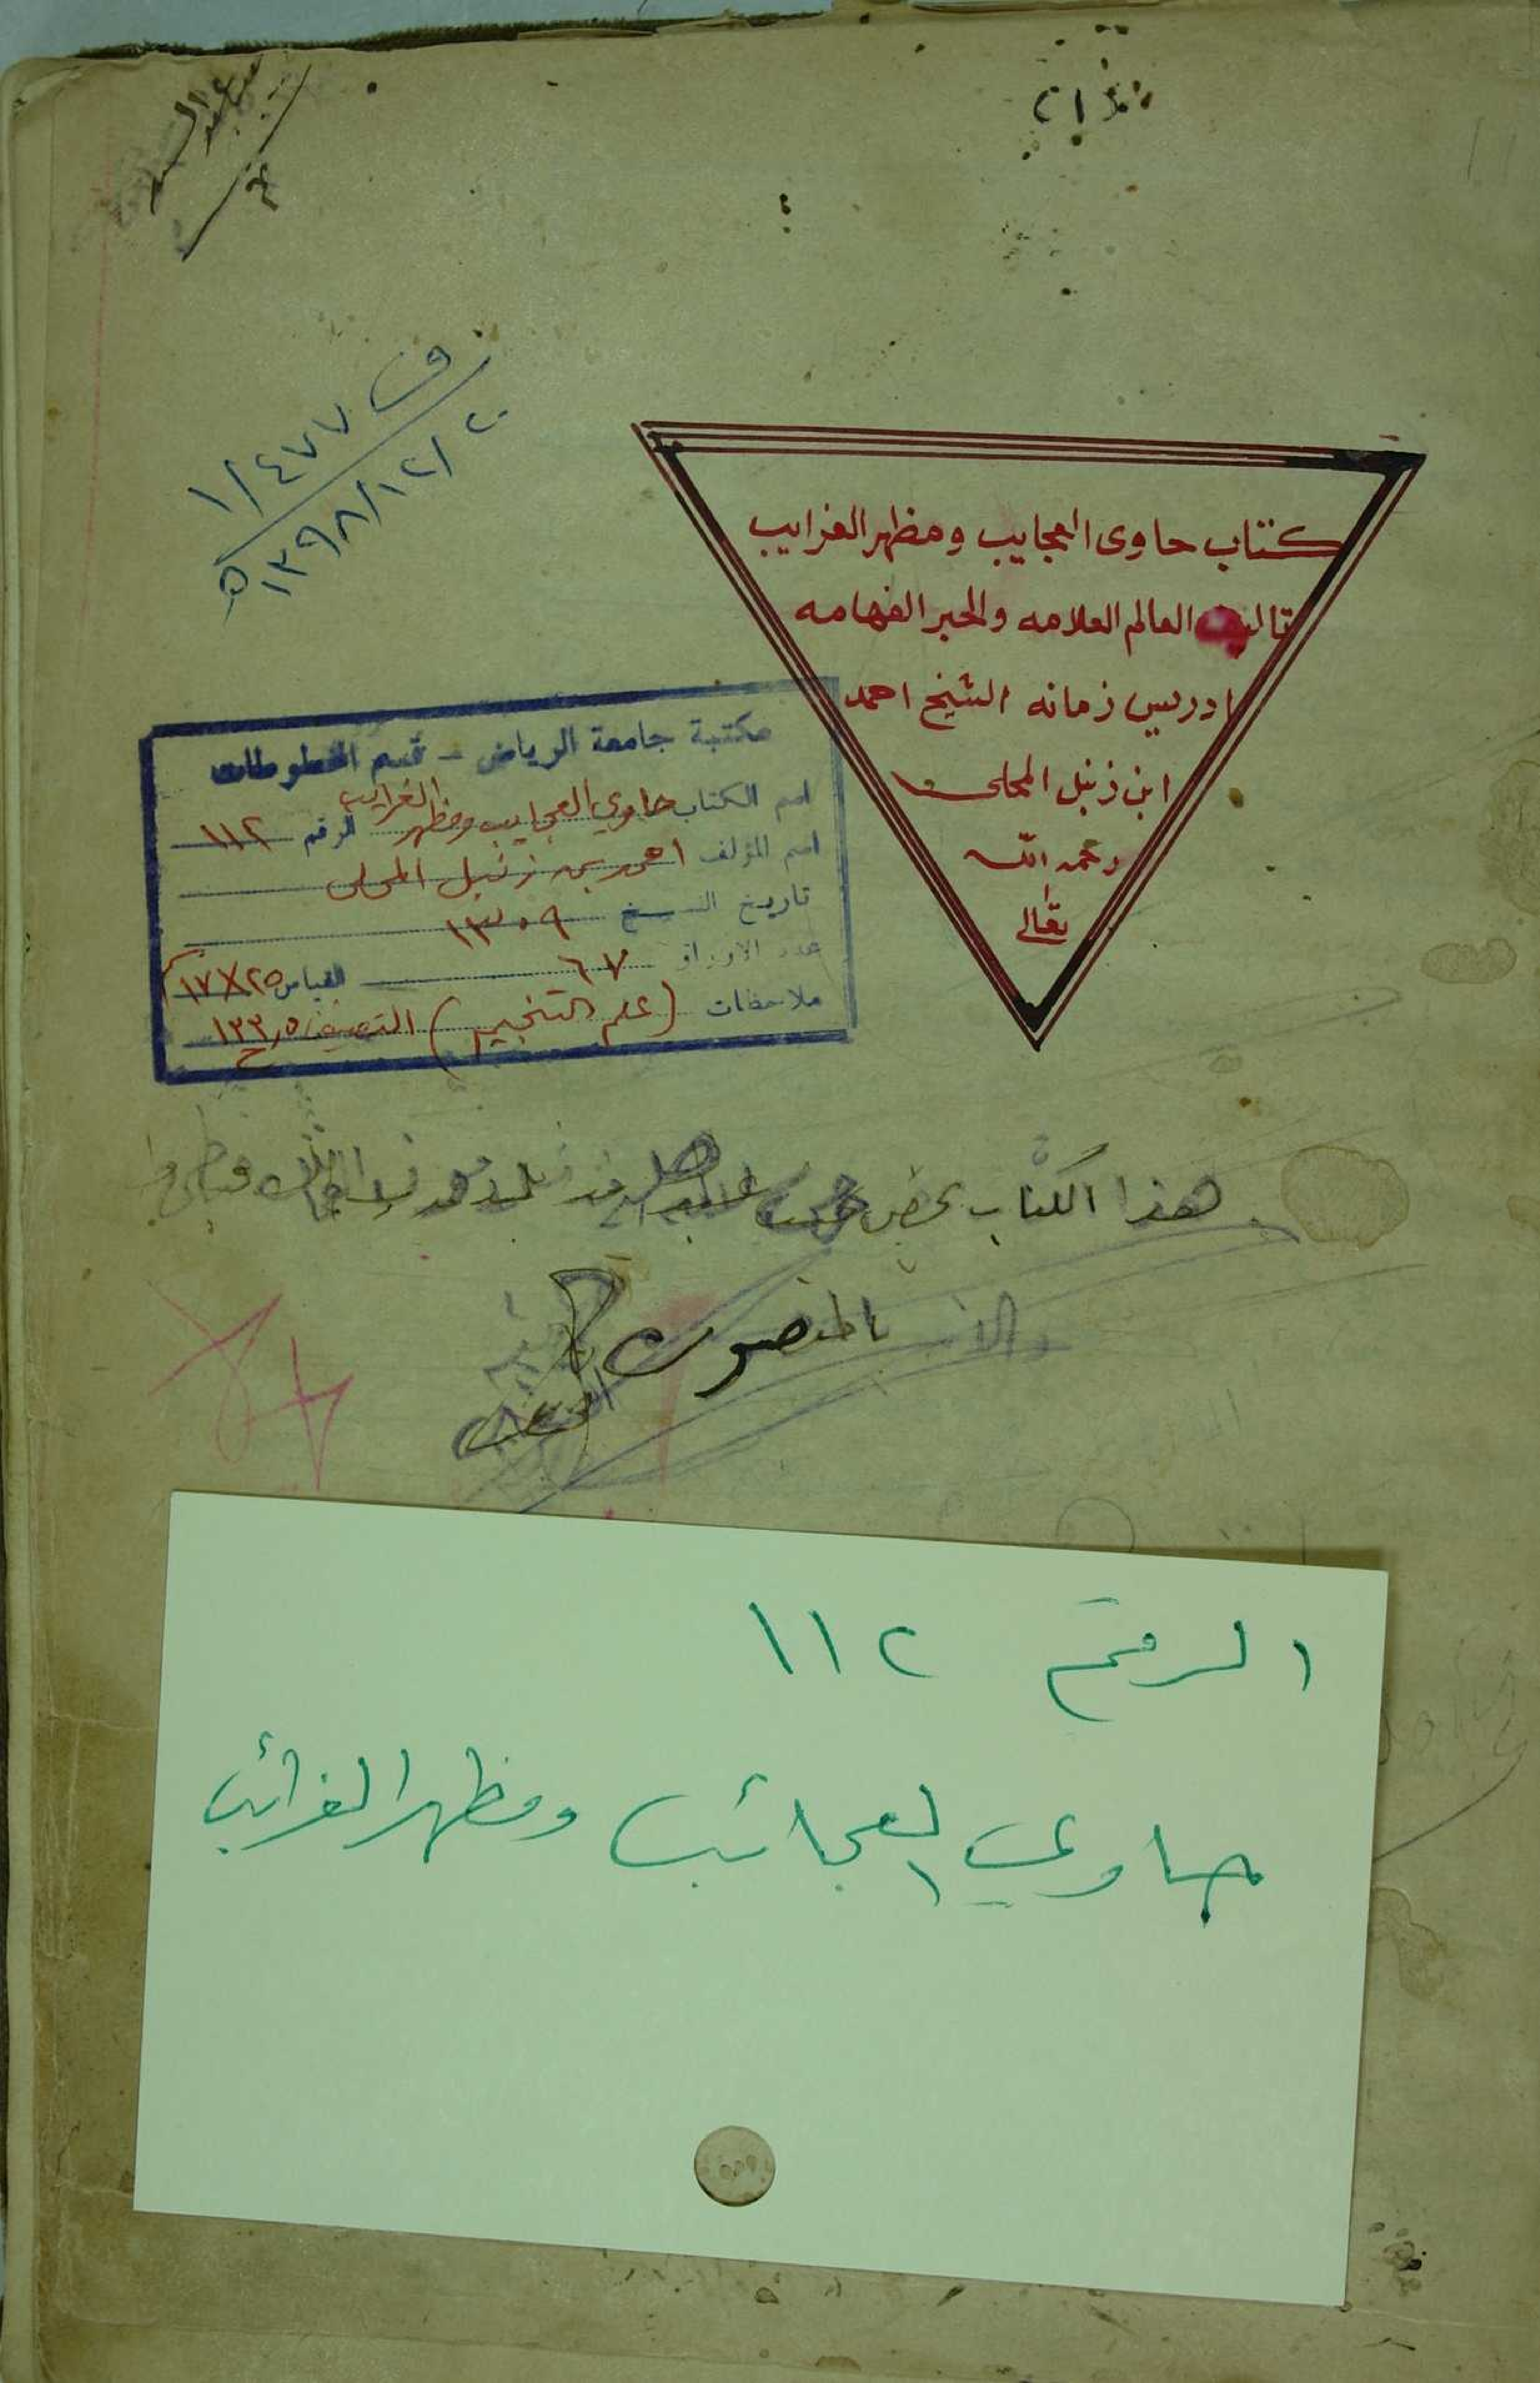 كتاب حاوى العجايب ومظهر الغرايب
تاليف العالم العلامه والحبر الفهامه
ادريس زمانه الشيخ احمد
ابن زنبل المحلى
رحمه الله
تعالى
ف ١/٤٧٧
١٣٩٨/١٢/٢٠ ه
مكتبة جامعة الرياض - قسم المخطوطات
اسم الكتاب حاوي العجايب ومظهر الغرايب الرقم ١١٢
اسم المؤلف احمد بن زنبل المحلى
تاريخ النسخ ١٣٠٩
عدد الاوراق ٦٧ القياس ٢٥×١٧
ملاحظات (علم التنجيم) التصنيف ١٣٣٫٥
هذا الكتاب يخص
المنصورى
الرقم ١١٢
حاوي العجائب ومظهر الغرائب